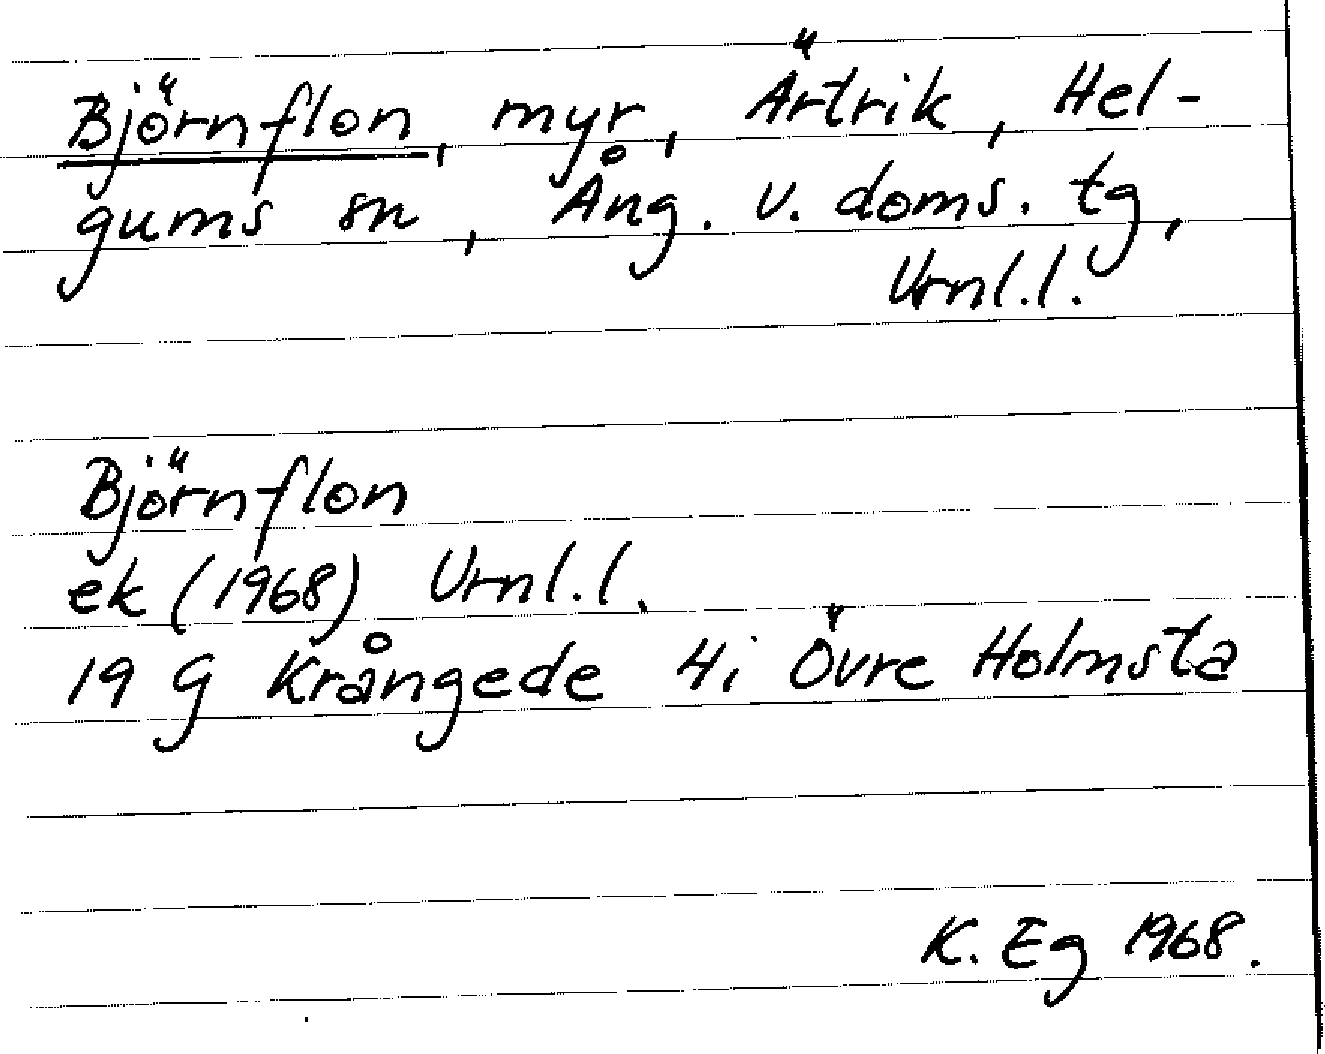 Björnflon, myr, Ärtrik, Hel-
gums sn, Ång. v. doms. tg,
Vrnl.l.
Björnflon
ek (1968) Vrnl.l.
19 G Krångede 4i Övre Holmsta
K. Eg 1968.